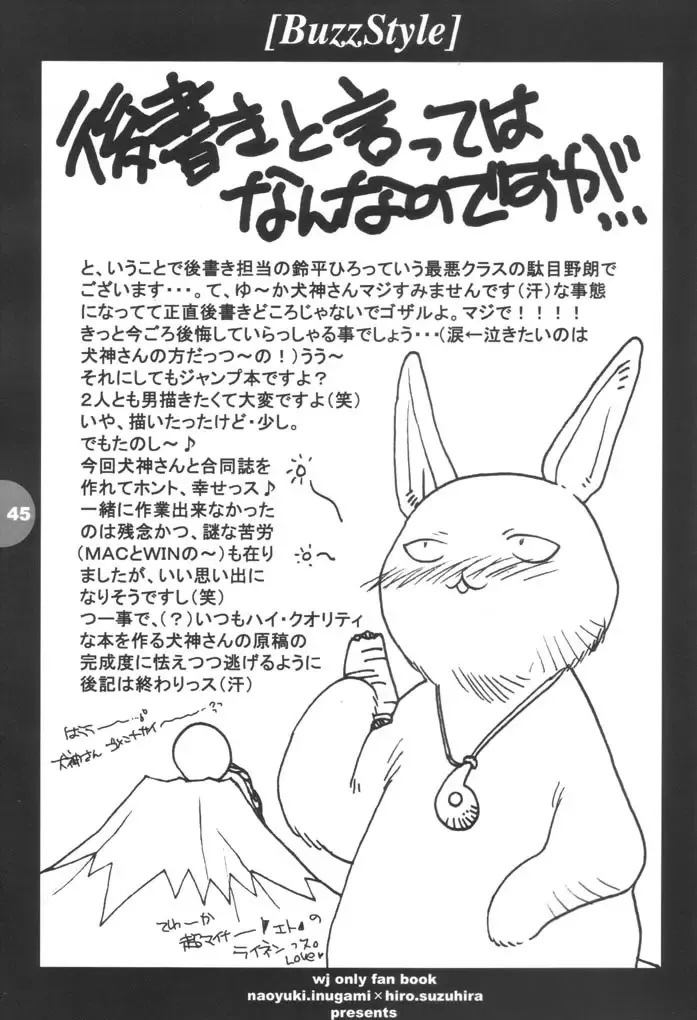 [BuzzStyle]
後書きと言っては
なんなのですが…
と、いうことで後書き担当の鈴平ひろっていう最悪クラスの駄目野朗で
ございます・・・。て、ゆ～か犬神さんマジすみませんです（汗）な事態
になってて正直後書きどころじゃないでゴザルよ。マジで！！！！
きっと今ごろ後悔していらっしゃる事でしょう・・・（涙←泣きたいのは
犬神さんの方だっつ～の！）うう～
それにしてもジャンプ本ですよ？
２人とも男描きたくて大変ですよ（笑）
いや、描いたったけど・少し。
でもたのし～♪
今回犬神さんと合同誌を
作れてホント、幸せっス♪
一緒に作業出来なかった
のは残念かつ、謎な苦労
（MACとWINの～）も在り
ましたが、いい思い出に
なりそうですし（笑）
つ一事で、（？）いつもハイ・クオリティ
な本を作る犬神さんの原稿の
完成度に怯えつつ逃げるように
後記は終わりっス（汗）
45
犬神さん ゴメンナサイ〜〜??
てゆーか
超マイナー
エトの
ライネンっス。
Love♥
wj only fan book
naoyuki.inugami×hiro.suzuhira
presents